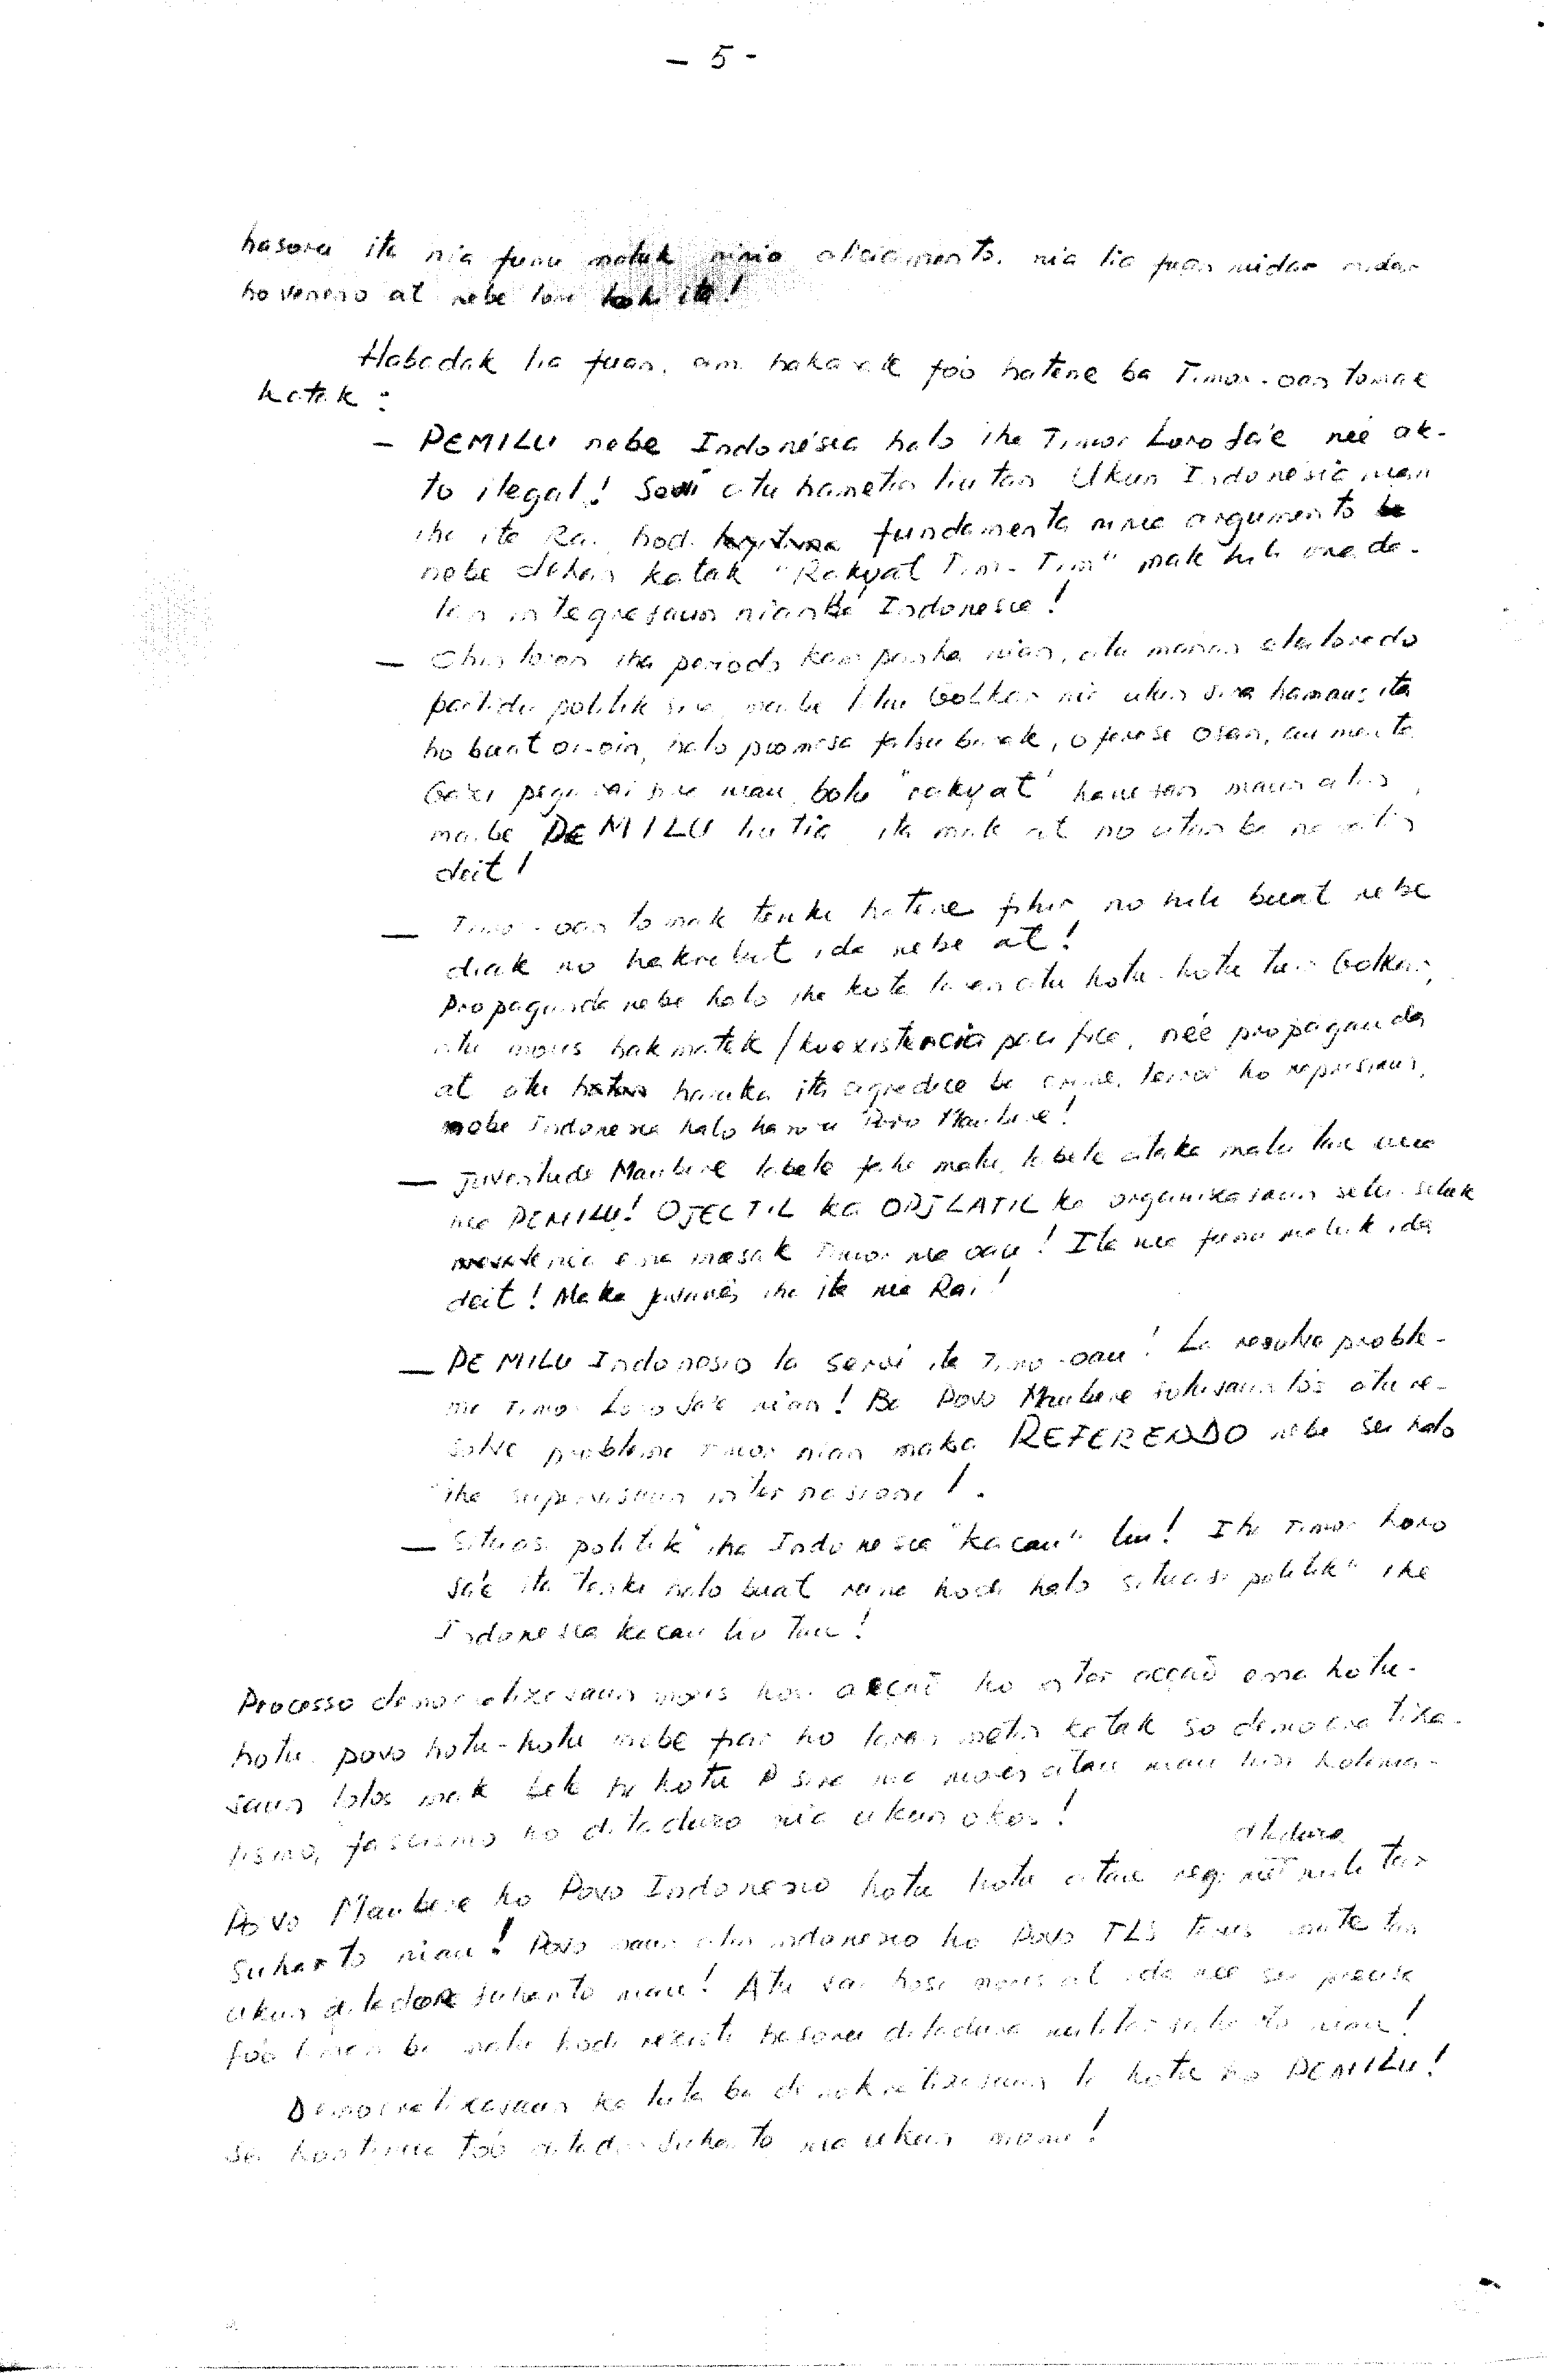 - 5 -
hasoru ita nia funu maluk ninia aliciamento, nia lia fuan midar midar
ho veneno at nebe lori hoho ita!
Habadak lia fuan, ami hakarak fóo hatene ba Timor-oan tomak
katak:
- PEMILU nebe Indonésia halo iha Timor Loro Sa'e neé ak-
to ilegal! Servi atu hametin liu tan Ukun Indonésia nian
iha ita Rai, hodi fundamenta ninia argumento
nebe dehan katak "Rakyat Tim-Tim" mak hili ona da-
lan integrasaun nian ba Indonesia!
- Ohin loron iha periodo kampanha nian, atu manan
partidu politik sira, maibe liliu Golkar nia ukun sira hamaus ita
ho buat oi-oin, halo promesa falsu barak, oferese osan, aumenta
Gaji pegawai sira nian, bolu "rakyat" hanesan maun alin,
maibe PEMILU liu tia, ita mak at no atan ba nafatin
deit!
- Timor-oan tomak tenki hatene fihir no hili buat nebe
diak no hakribit ida nebe at!
Propaganda nebe halo iha kota laran atu hotu-hotu tuir Golkar,
atu moris hakmatek / koexistencia pacifica, neé propaganda
at atu haruka ita agradece ba crime, terror ho repressaun,
nebe Indonesia halo hasoru Povo Maubere!
- Juventude Maubere labele fahe malu, labele ataka malu tan
nia PEMILU! OJECTIL ka OPJLATIL ka organizasaun seluk-seluk
nia ema mesak Timor nia oan! Ita nia funu maluk ida
deit! Maka iha ita nia Rai!
- PEMILU Indonesio la servi ita Timor-oan! La resolve proble-
ma Timor Loro Sa'e nian! Ba Povo Maubere solusaun lós atu re-
solve problema Timor nian maka REFERENDO nebe sei halo
iha supervisaun internasional!.
- "Situasi politik" iha Indonesia "kacau" liu! Iha Timor Loro
Sa'e ita tenki halo buat ruma hodi halo "situasi politik" iha
Indonesia kacau liu tan!
Processo demokratizasaun moris hosi acção ho inter acção ema hotu-
hotu, povo hotu-hotu nebe fiar ho laran metin katak so democratiza-
saun lolos mak bele hotu sira nia moris atan nian husi kolonia-
lismo, fascismo ho ditadura nia ukun okos!
ditadura
Povo Maubere ho Povo Indonesio hotu hotu atan regime militar
Suharto nian! Povo maun alin indonesio ho Povo TLS terus
ukun ditadore Suharto nian! Atu sai hosi moris at ida neé sei precisa
fóo liman ba malu hodi resiste hasoru ditadura militar Suharto nian!
Democratizasaun ka luta ba demokratizasaun la hotu ho PEMILU!
Sei kontinua tóo ditador Suharto nia ukun monu!